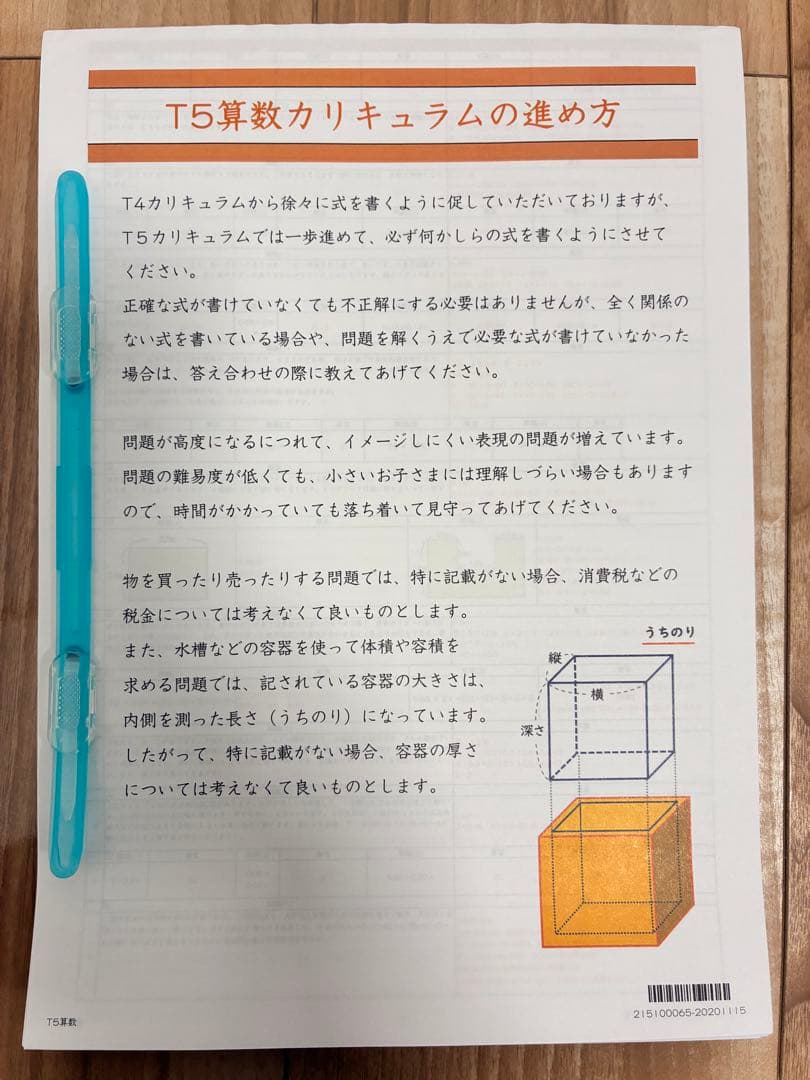 T5算数カリキュラムの進め方
T4カリキュラムから徐々に式を書くように促していただいておりますが、
T5カリキュラムでは一歩進めて、必ず何かしらの式を書くようにさせて
ください。
正確な式が書けていなくても不正解にする必要はありませんが、全く関係の
ない式を書いている場合や、問題を解くうえで必要な式が書けていなかった
場合は、答え合わせの際に教えてあげてください。
問題が高度になるにつれて、イメージしにくい表現の問題が増えています。
問題の難易度が低くても、小さいお子さまには理解しづらい場合もあります
ので、時間がかかっていても落ち着いて見守ってあげてください。
物を買ったり売ったりする問題では、特に記載がない場合、消費税などの
税金については考えなくて良いものとします。
また、水槽などの容器を使って体積や容積を
求める問題では、記されている容器の大きさは、
内側を測った長さ（うちのり）になっています。
したがって、特に記載がない場合、容器の厚さ
については考えなくて良いものとします。
うちのり
縦
横
深さ
215100065-20201115
T5算数